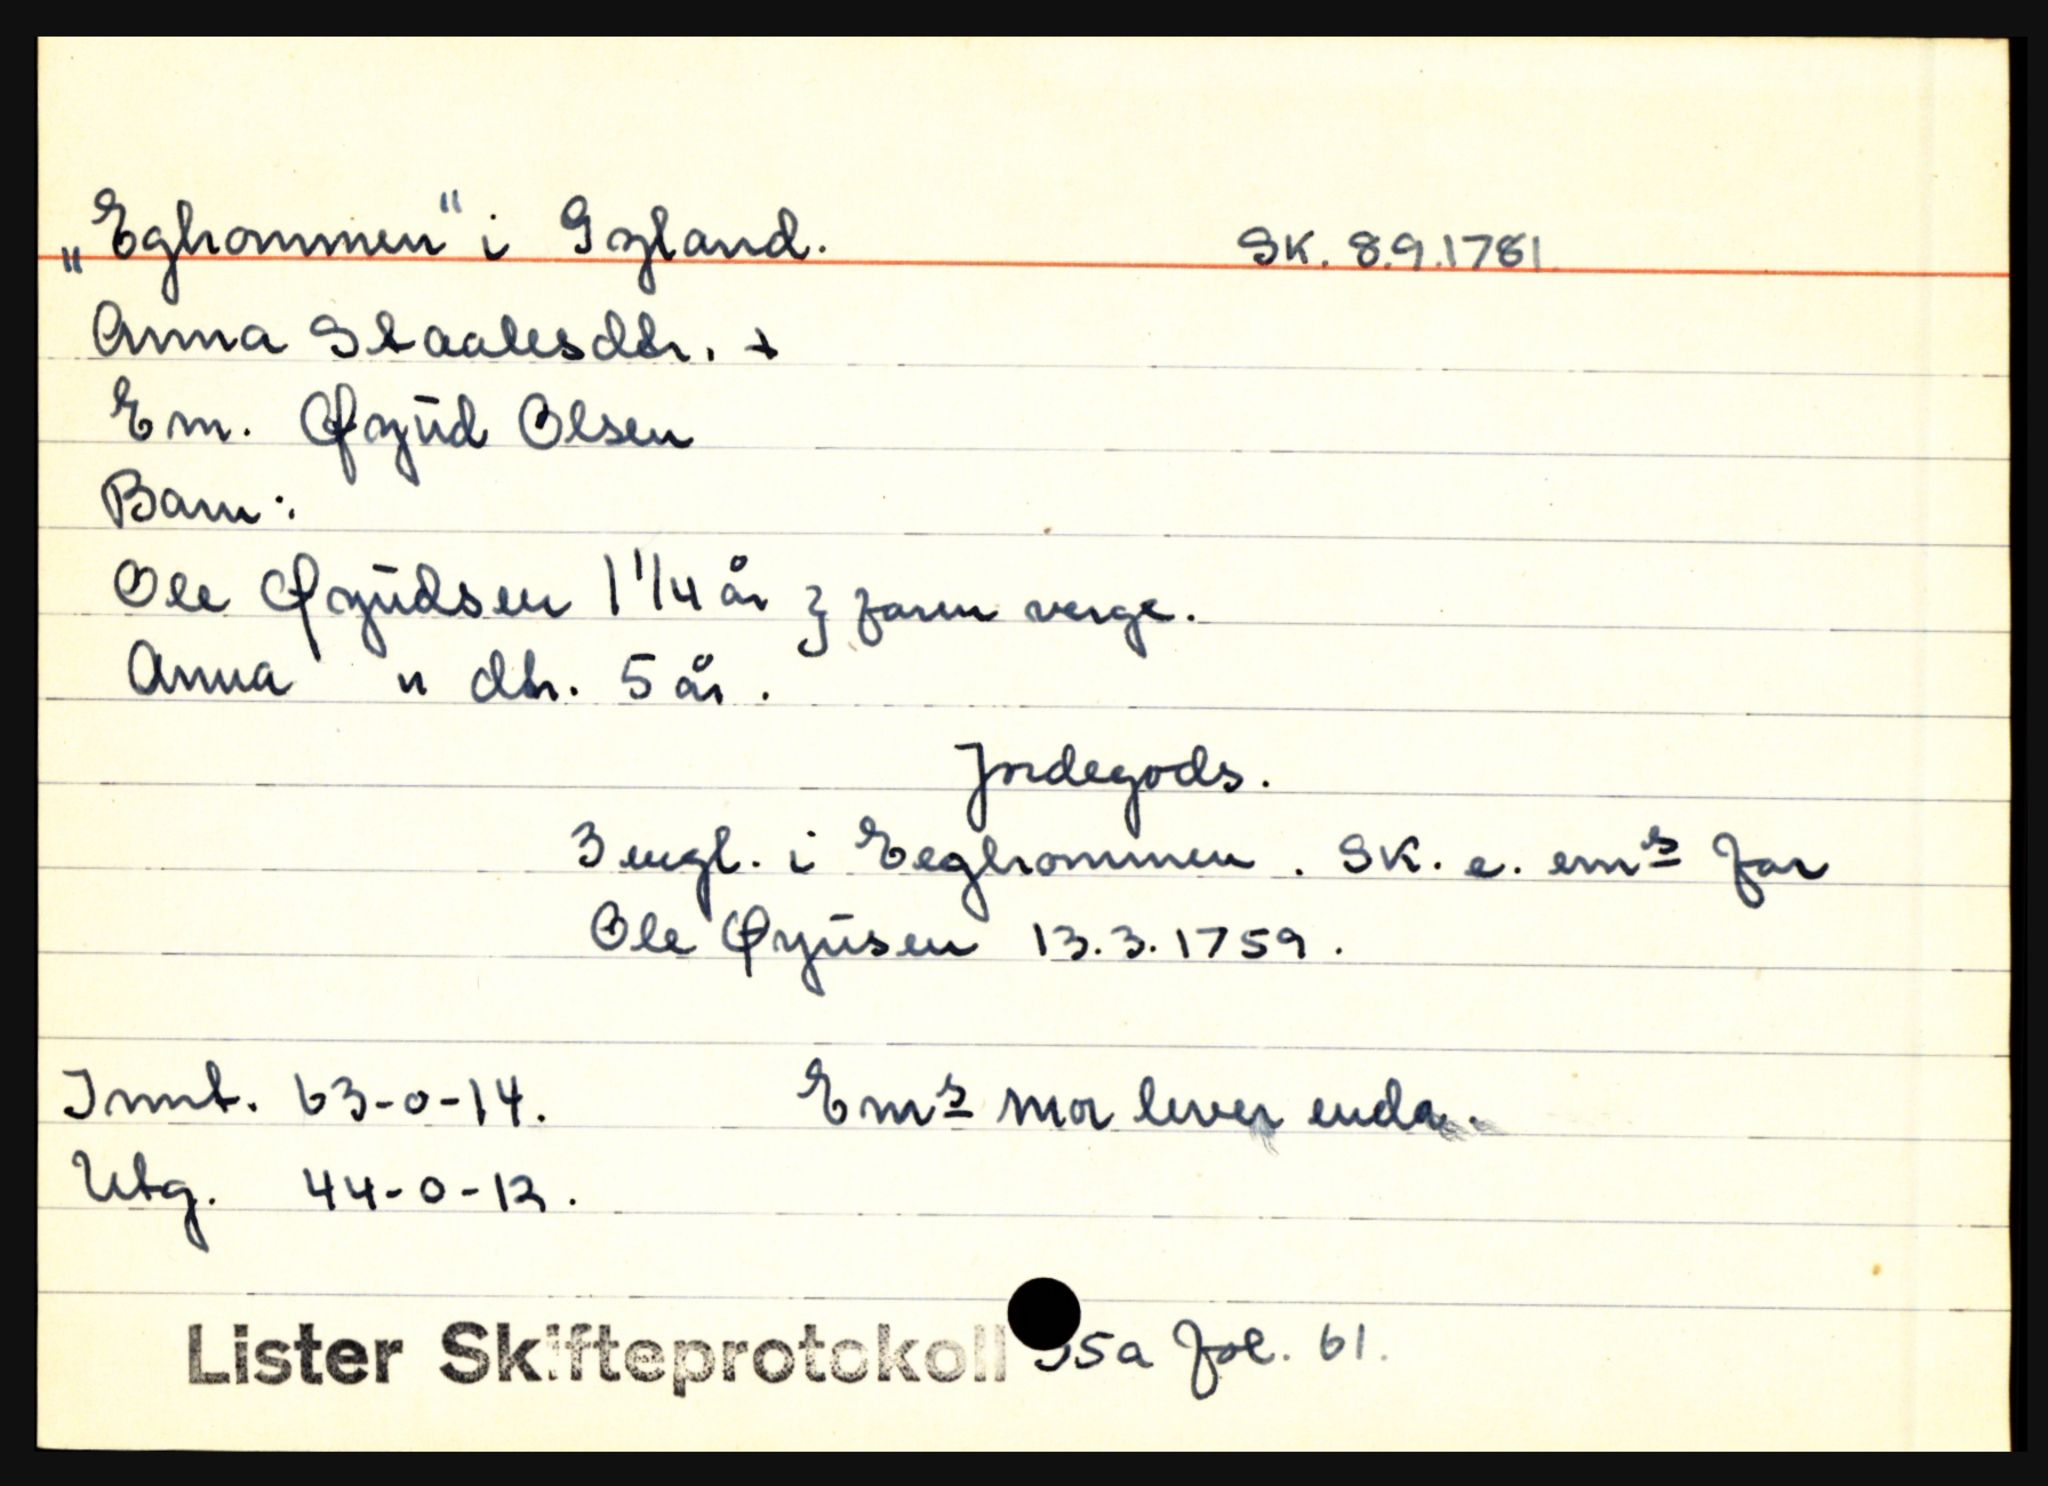 „Eghommen" i Gyland. SK. 8.9.1781
Anna Staalesdtr. +
Em. Øyūd Olsen
Barn:
Ole Øyūdsen 1 1/4 år } faren verge.
Anna " dtr. 5 år.
Jordegods.
3 engl. i Eeghommen. SK. e. ems far
Ole Øyūsen 13.3.1759.
Innt. 63-0-14. Ems mor lever enda.
Utg. 44-0-12.
Lister Skifteprotokoll 35a fol. 61.